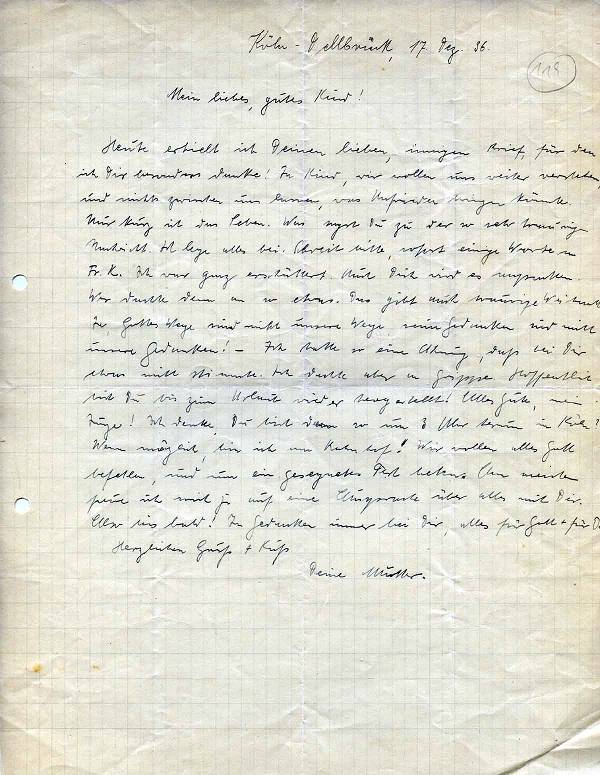 Köln-Dellbrück, 17. Dez. 36.
119
Mein liebes, gutes Kind!
Heute erhielt ich Deinen lieben, innigen Brief, für den
ich Dir besonders danke! Ja Kind, wir wollen uns weiter verstehen,
und nichts zwischen uns lassen, was Unfrieden bringen könnte.
Nur kurz ist das Leben. Was sagst Du zu der so sehr traurigen
Nachricht. Ich lege alles bei. Schreib bitte, sofort einige Worte an
Fr. K. Ich war ganz erschüttert. Auch Dich wird es
Wer dachte denn an so etwas. Das gibt auch traurige Weihnacht
Ja Gottes Wege sind nicht unsere Wege, seine Gedanken sind nicht
unsere Gedanken! – Ich hatte so eine Ahnung, daß bei Dir
etwas nicht stimmte. Ich dachte aber an Grippe. Hoffentlich
bist Du bis zum Urlaub wieder hergestellt! Alles Gute, mein
Junge! Ich denke, Du bist dann so um 8 Uhr herum in Köln?
Wenn möglich, bin ich am Bahnhof! Wir wollen alles Gott
befehlen, und um ein gesegnetes Fest beten. Am meisten
freue ich mich ja auf eine Aussprache über alles mit Dir.
Also bis bald! In Gedanken immer bei Dir, alles für Gott + für D
Herzlichen Gruß + Kuß
Deine Mutter.